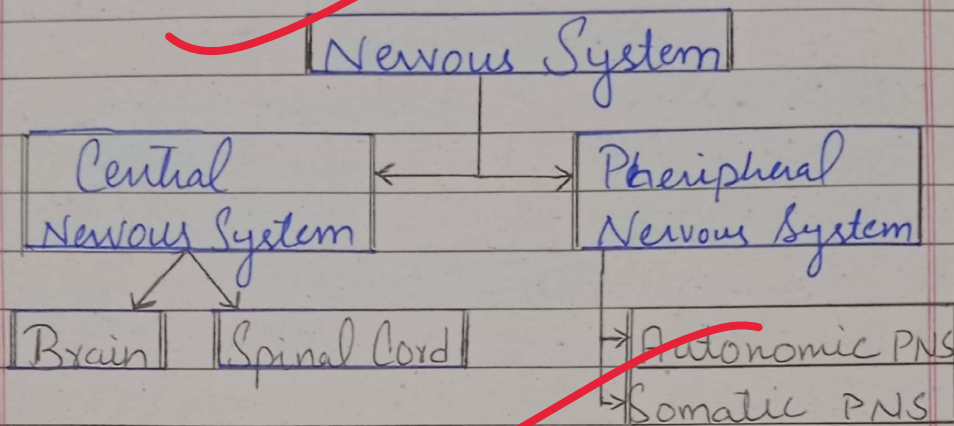 Nervous System
Central
Nervous System
Pheripheral
Nervous System
Brain
Spinal Cord
Autonomic PNS
Somatic PNS